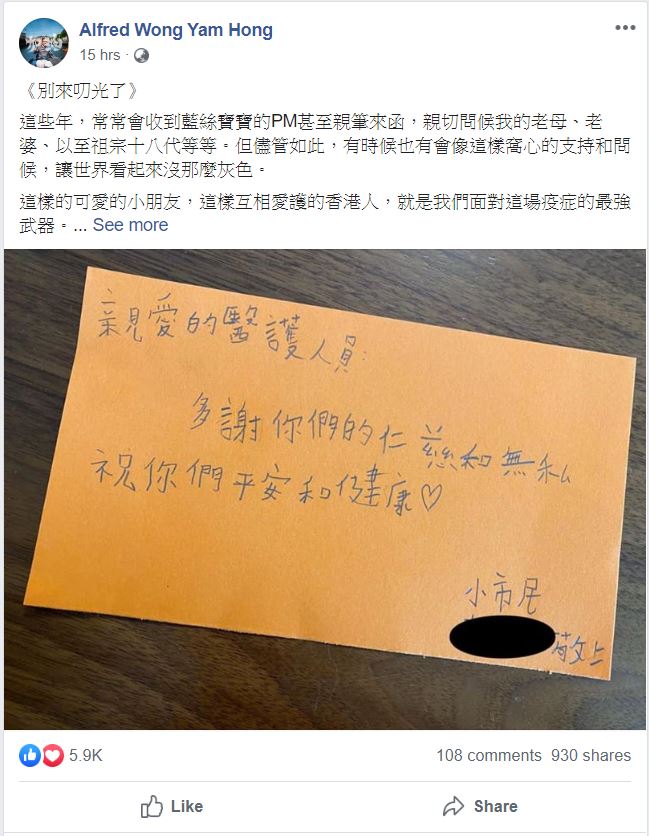 Alfred Wong Yam Hong
15 hrs ·
《別來叨光了》
這些年，常常會收到藍絲寶寶的PM甚至親筆來函，親切問候我的老母、老
婆、以至祖宗十八代等等。但儘管如此，有時候也有會像這樣窩心的支持和問
候，讓世界看起來沒那麼灰色。
這樣的可愛的小朋友，這樣互相愛護的香港人，就是我們面對這場疫症的最強
武器。... See more
親愛的醫護人員:
多謝你們的仁慈和無私
祝你們平安和健康♡
小市民
敬上
5.9K
108 comments 930 shares
Like
Share